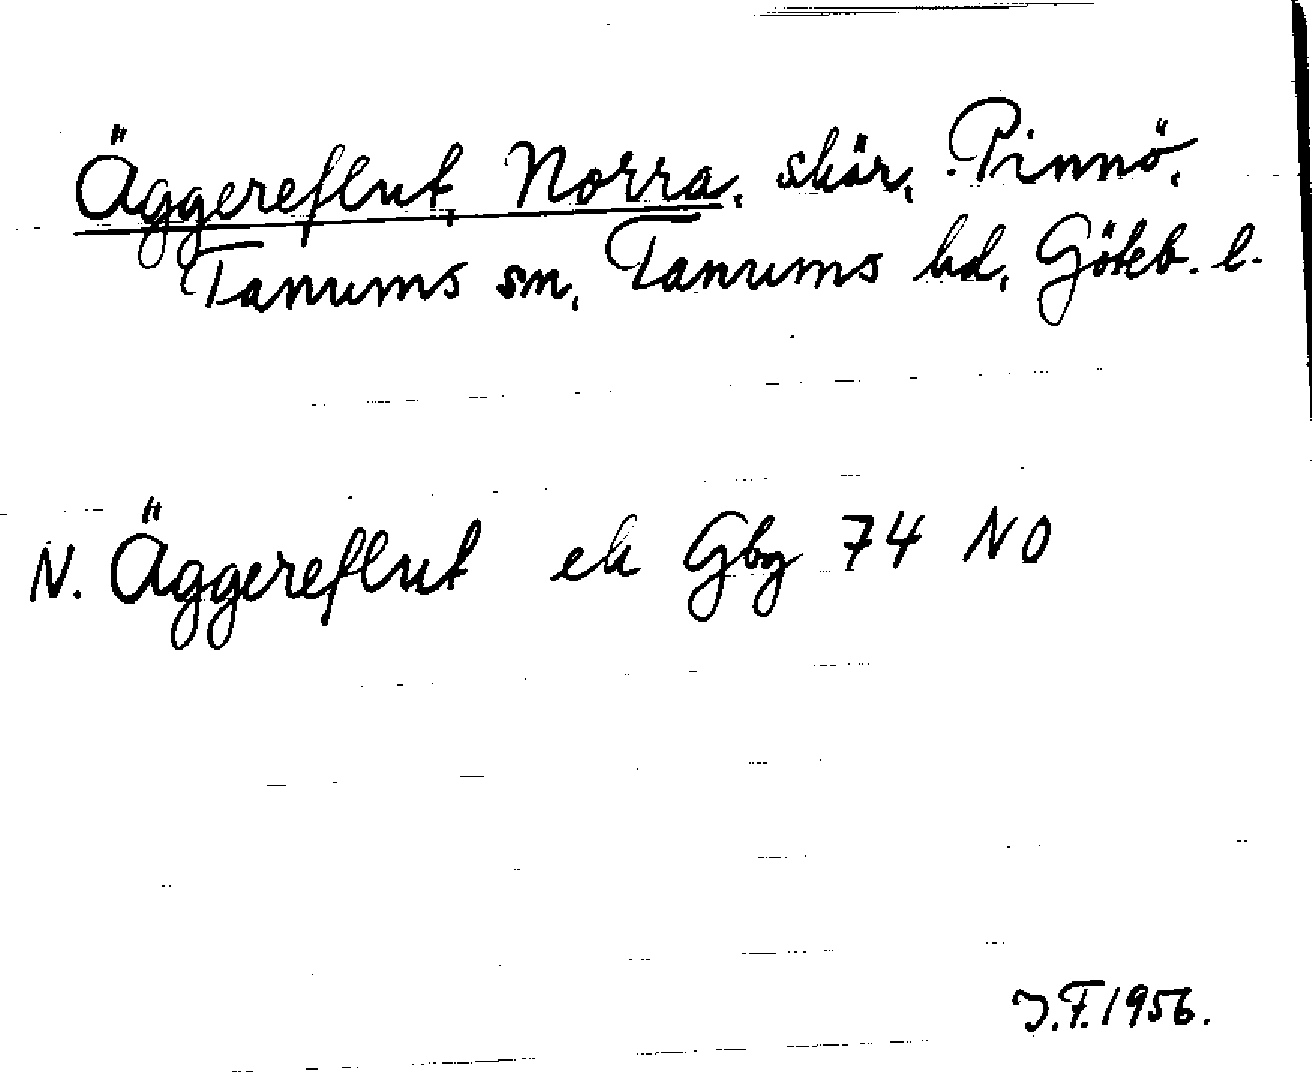 Äggereflut, Norra, skär, Pinnö,
Tanums sn, Tanums hd, Göteb. l.
N. Äggereflut ek Gbg 74 NO
J.F. 1956.